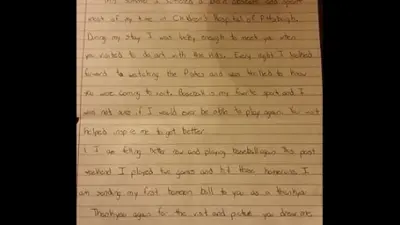 summer I suffered a brain and spent
most of my time in Children's Hospital of Pittsburgh.
During my stay I was lucky enough to meet you when
you visited to do art with the kids. Every night I looked
forward to watching the Pirates and was thrilled to know
you were coming to visit. Baseball is my favorite sport and I
was not sure if I would ever be able to play again. Your visit
helped inspire me to get better.
I am feeling better now and playing baseball again. This past
weekend I played two games and hit three homeruns. I
am sending my first homerun ball to you as a thankyou.
Thankyou again for the visit and picture you drew me.